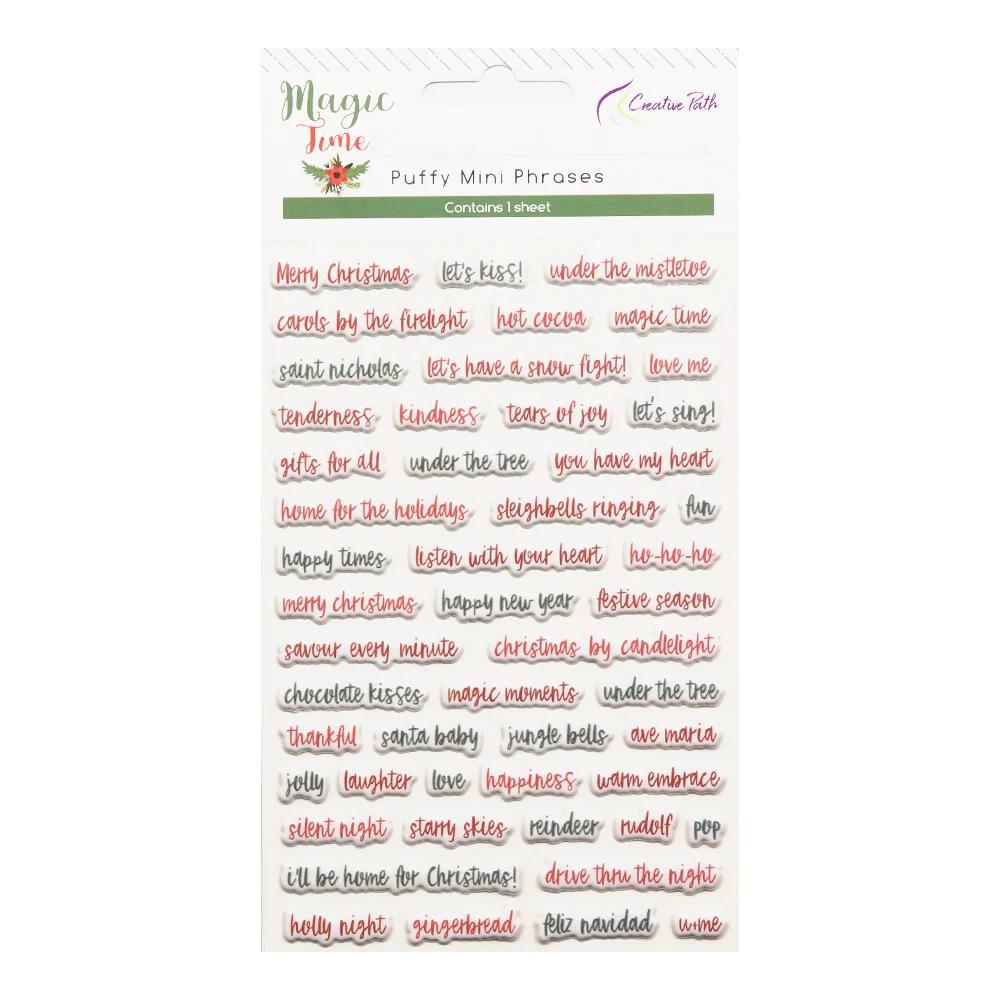 Magic
Time
Creative Path
Puffy Mini Phrases
Contains 1 sheet
Merry Christmas let's kiss! under the mistletoe
carols by the firelight hot cocoa magic time
saint nicholas let's have a snow fight! love me
tenderness kindness tears of joy let's sing!
gifts for all under the tree you have my heart
home for the holidays sleighbells ringing fun
happy times listen with your heart ho-ho-ho
merry christmas happy new year festive season
savour every minute christmas by candlelight
chocolate kisses magic moments under the tree
thankful santa baby jungle bells ave maria
jolly laughter love happiness warm embrace
silent night starry skies reindeer rudolf pop
i'll be home for Christmas! drive thru the night
holly night gingerbread feliz navidad u+me